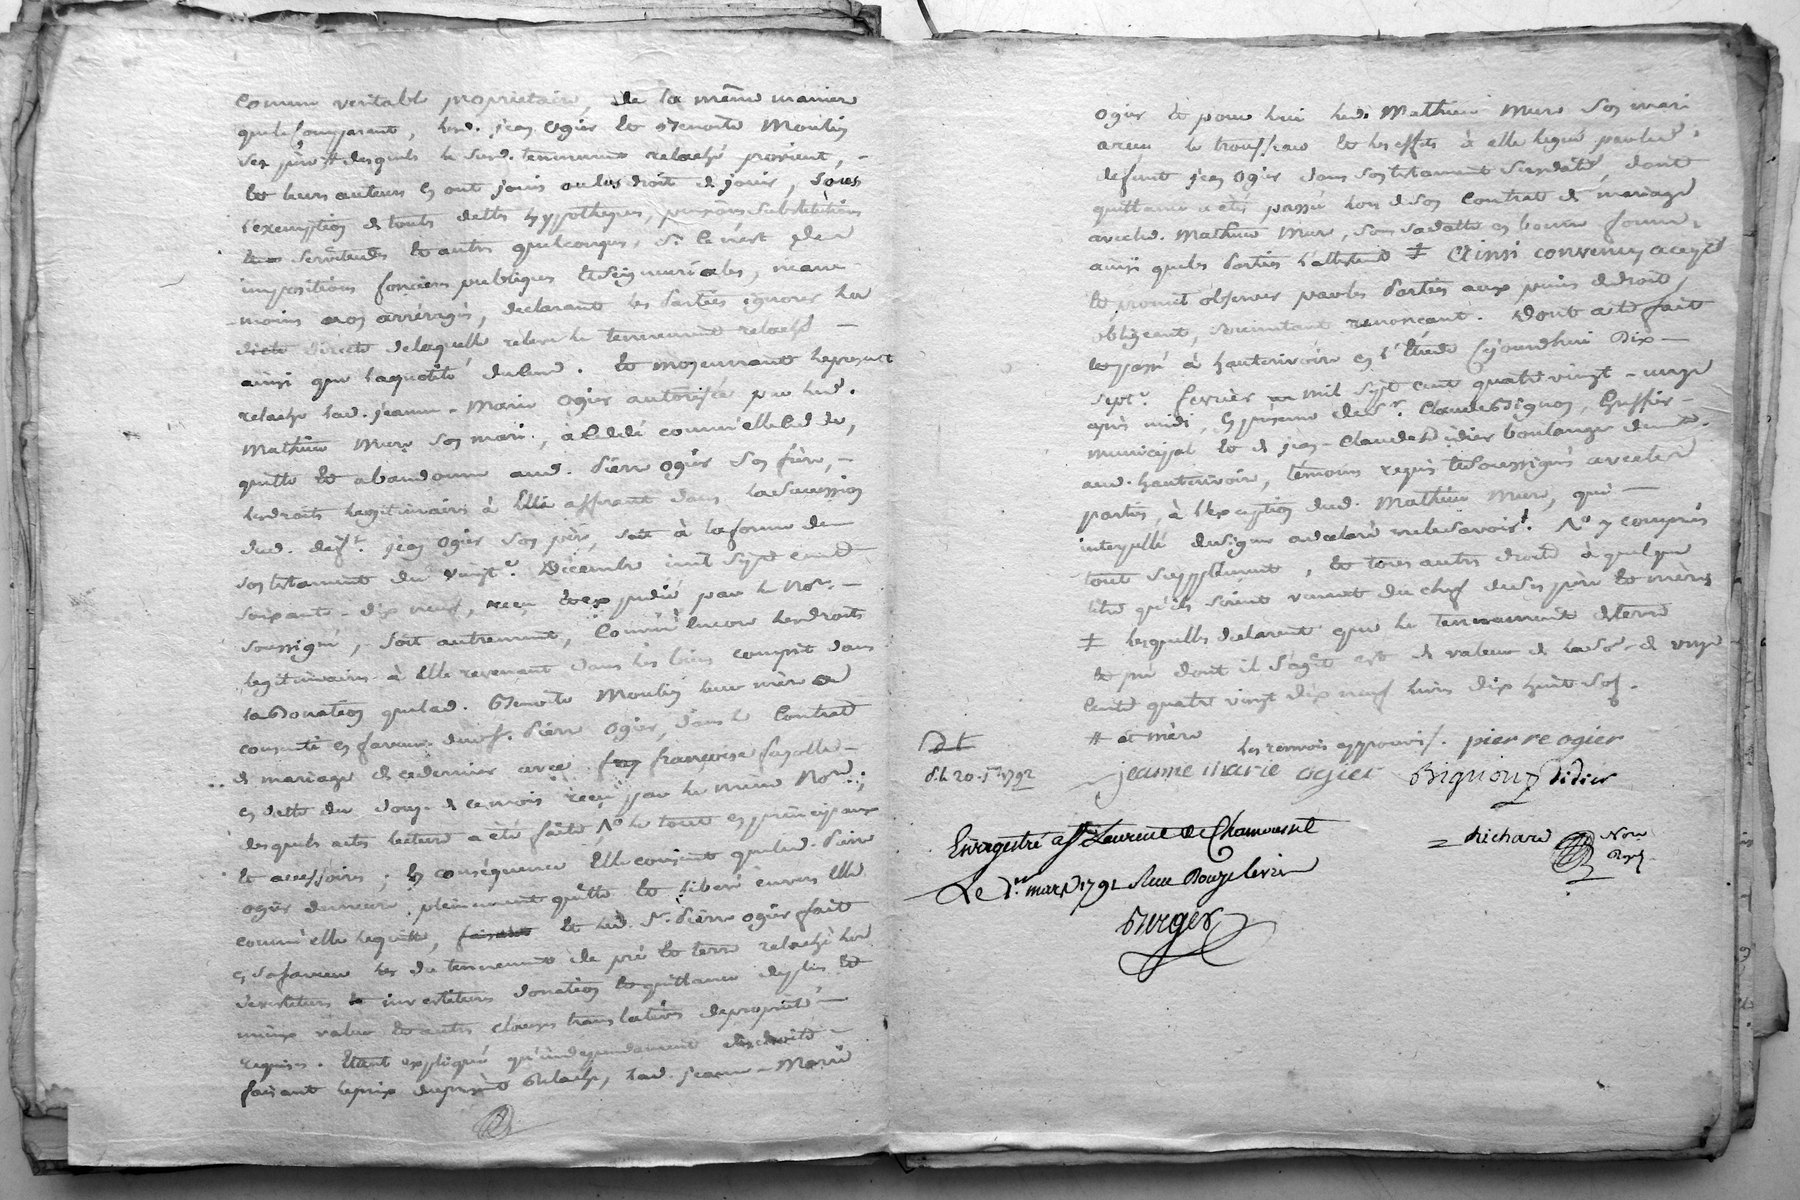 Comme veritable proprietaire, de la même maniere
que le comparant, led. jean Ogier et Benoite Moulin
ses père # desquels le susd. tenement relaché provient, -
et leurs auteurs en ont joui ou eu droit de jouir, sous
l'exemption de touts dettes hyppotheques, pensions substitutions
servitudes et autres quelconques, si ce n'est des
impositions foncieres publiques et seigneuriales, neanmoins
sans arrérages, declarant les parties ignorer la
directe de laquelle releve le tenement relaché -
ainsi que la quotité du cens. Et moyennant le present
relache lad. jeanne - Marie Ogier autorisée par led.
Mathieu Mure son mari, a cedé comme elle cede,
quitte et abandonne aud. Pierre Ogier son frère, -
les droits legitimaires à Elle afferant dans la succession
dud. deft. jean Ogier son père, soit à la forme de
son testament du vingt Décembre mil sept cent
soixante - dix neuf, reçu et expedié par le Nore. -
soussigné, - soit autrement, Comm'encore les droits
legitimaires à Elle revenant dans les biens compris dans
la Donation que lad. Benoite Moulin leur mère a
consenti en faveur dud. Pierre Ogier, dans le Contrat
de mariage de ce dernier avec françoise fayolle -
en datte du douze de ce mois reçu par le même Nore.;
desquels actes lecture a été faite, le tout en principaux
et accessoires; En conséquence Elle consent que led. Pierre
Ogier demeure pleinement quitte et liberé envers Elle
comm'elle le quitte, et led. Sr. Pierre Ogier fait
en sa faveur les du tenement de pré et terre relaché les
devestiture investiture donation et quittance de plus et
mieux value et autres clauses translatives de propriété -
requises. Etant expliqué qu'independament des droits -
faisant le prix du present Relache, lad. jeanne - Marie
Ogier et pour lui led. Mathieu Mure son mari
a reçu le trousseau et les effets à elle legué par led.
defunt jean Ogier dans son testament susdaté, dont
quittance a été passé lors de son Contrat de mariage
avec led. Mathieu Mure, sous sa datte en bonne forme,
ainsi que les Parties l'attestent ‡ Ainsi convenu, accepté
et promit observer par les Parties aux peines de droit,
obligeant, soumettant renonçant. Dont acte fait
et passé à hauterivoire en l'Etude Cejourdhui Dix -
sept. fevrier mil sept cent quatre vingt - onze
après midi, En présence de Sr. Claude Bignon, huissier -
municipal et de jean - Claude Didier boulanger demt.
aud. hauterivoire, temoins requis et soussignés avec les
parties, à l'exception dud. Mathieu Mure, qui -
interpellé de signer a declaré ne le savoir. N° y compris
tout supplement, et tous autres droits à quelque
titre qu'ils soient venant du chef de ses père et mère
‡ lesquelles declarent que le tenement de terre
et pré dont il s'agit est de valeur de la so. de onze
Cents quatre vingt dix neuf livres dix huit sols.
# et mère
les renvois approuvés. pierre ogier
d.l. 20. 1792
jeanne marie ogier Bignon Didier
Enregistré a St Laurent de Chamousset
= Richard Nore
Royal
Le 1er mars 1791 Reçu Douze livres
Burger